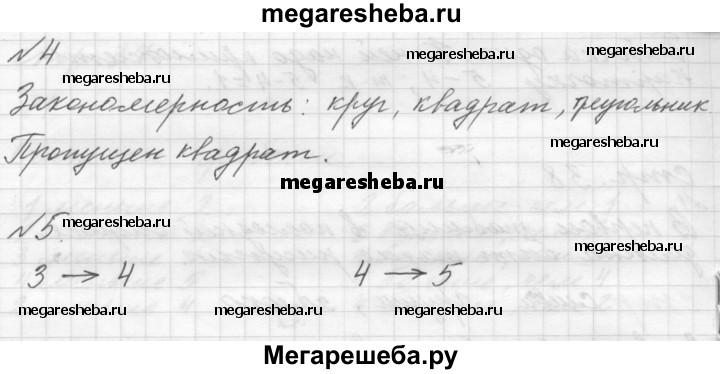 megaresheba.ru
№4
megaresheba.ru megaresheba.ru
Закономерность: круг, квадрат, треугольник
Пропущен квадрат.
megaresheba.ru
megaresheba.ru
№5. megaresheba.ru
megaresheba.ru
3 → 4 4 → 5
megaresheba.ru megaresheba.ru megaresheba.ru
Мегарешеба.ру